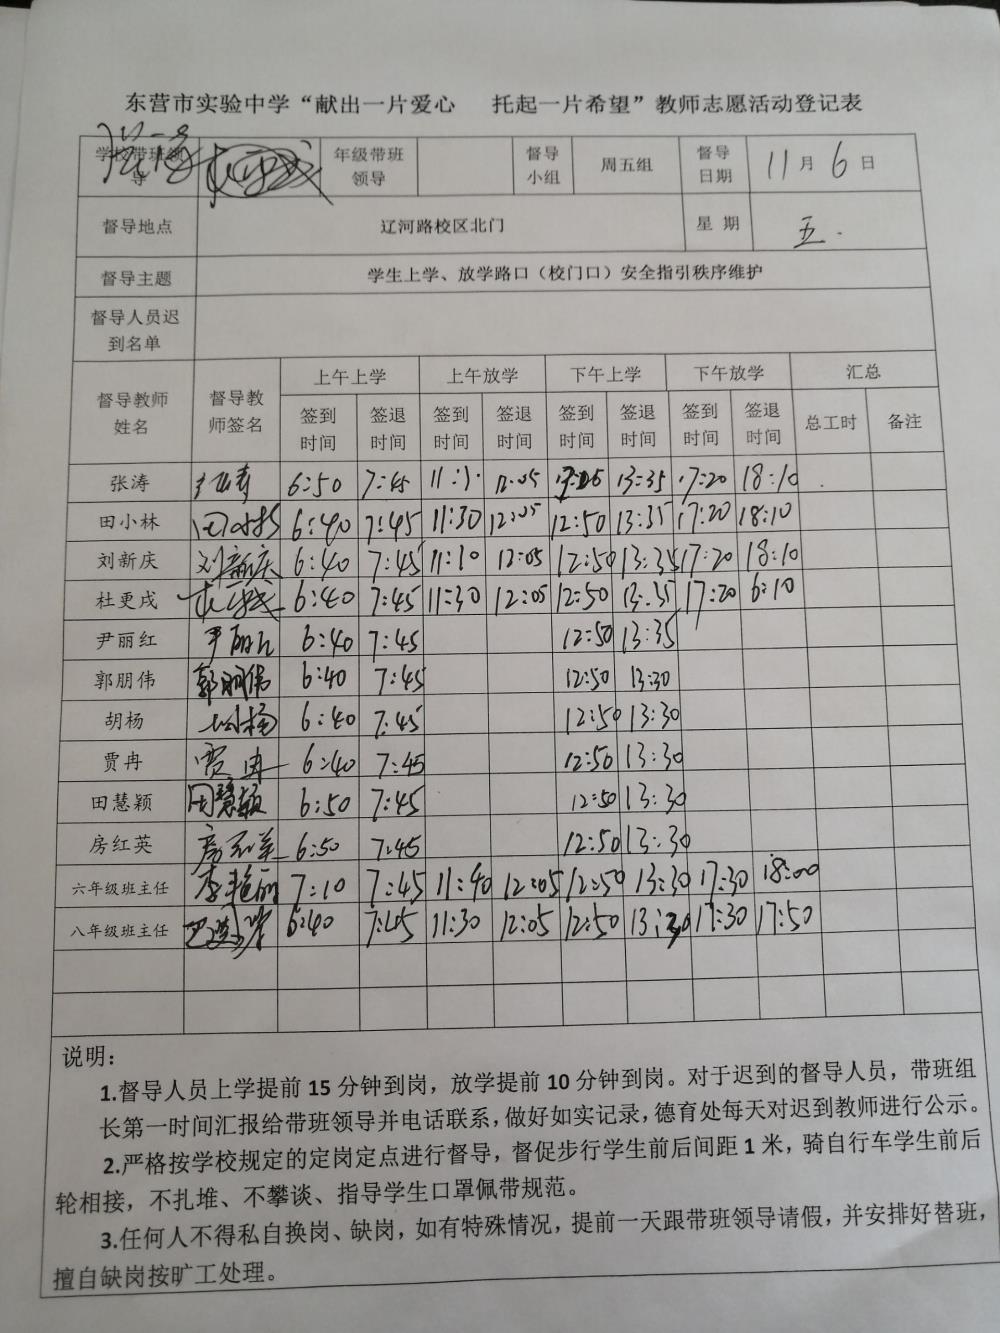 东营市实验中学“献出一片爱心 托起一片希望”教师志愿活动登记表
学校带班领导 年级带班领导 督导小组 周五组 督导日期 11月6日
督导地点 辽河路校区北门 星期 五.
督导主题 学生上学、放学路口（校门口）安全指引秩序维护
督导人员迟到名单
督导教师姓名 督导教师签名 上午上学 上午放学 下午上学 下午放学 汇总
签到时间 签退时间 签到时间 签退时间 签到时间 签退时间 签到时间 签退时间 总工时 备注
张涛 6:50 7:45 12:05 13:35 17:20 18:10
田小林 田小林 6:40 7:45 11:30 12:05 12:50 13:35 17:20 18:10
刘新庆 刘新庆 6:40 7:45 11:30 12:05 12:50 13:35 17:20 18:10
杜更戌 杜更戌 6:40 7:45 11:30 12:05 12:50 13:35 17:20 6:10
尹丽红 尹丽红 6:40 7:45 12:50 13:35
郭朋伟 郭朋伟 6:40 7:45 12:50 13:30
胡杨 胡杨 6:40 7:45 12:50 13:30
贾冉 贾冉 6:40 7:45 12:50 13:30
田慧颖 田慧颖 6:50 7:45 12:50 13:30
房红英 房红英 6:50 7:45 12:50 13:30
六年级班主任 李艳丽 7:10 7:45 11:40 12:05 12:50 13:30 17:30 18:00
八年级班主任 6:40 7:45 11:30 12:05 12:50 13:30 17:30 17:50
说明：
1.督导人员上学提前 15 分钟到岗，放学提前 10 分钟到岗。对于迟到的督导人员，带班组
长第一时间汇报给带班领导并电话联系，做好如实记录，德育处每天对迟到教师进行公示。
2.严格按学校规定的定岗定点进行督导，督促步行学生前后间距 1 米，骑自行车学生前后
轮相接，不扎堆、不攀谈、指导学生口罩佩带规范。
3.任何人不得私自换岗、缺岗，如有特殊情况，提前一天跟带班领导请假，并安排好替班，
擅自缺岗按旷工处理。